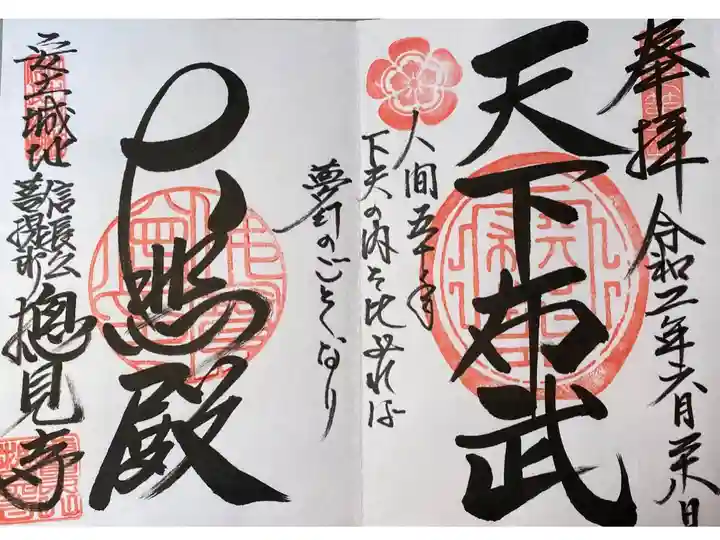 奉拝
令和二年六月廿八日
天下布武
人間五十年
下天の内を比ぶれば
夢幻のごとくなり
照殿
安土城址
信長公
菩提所
摠見寺